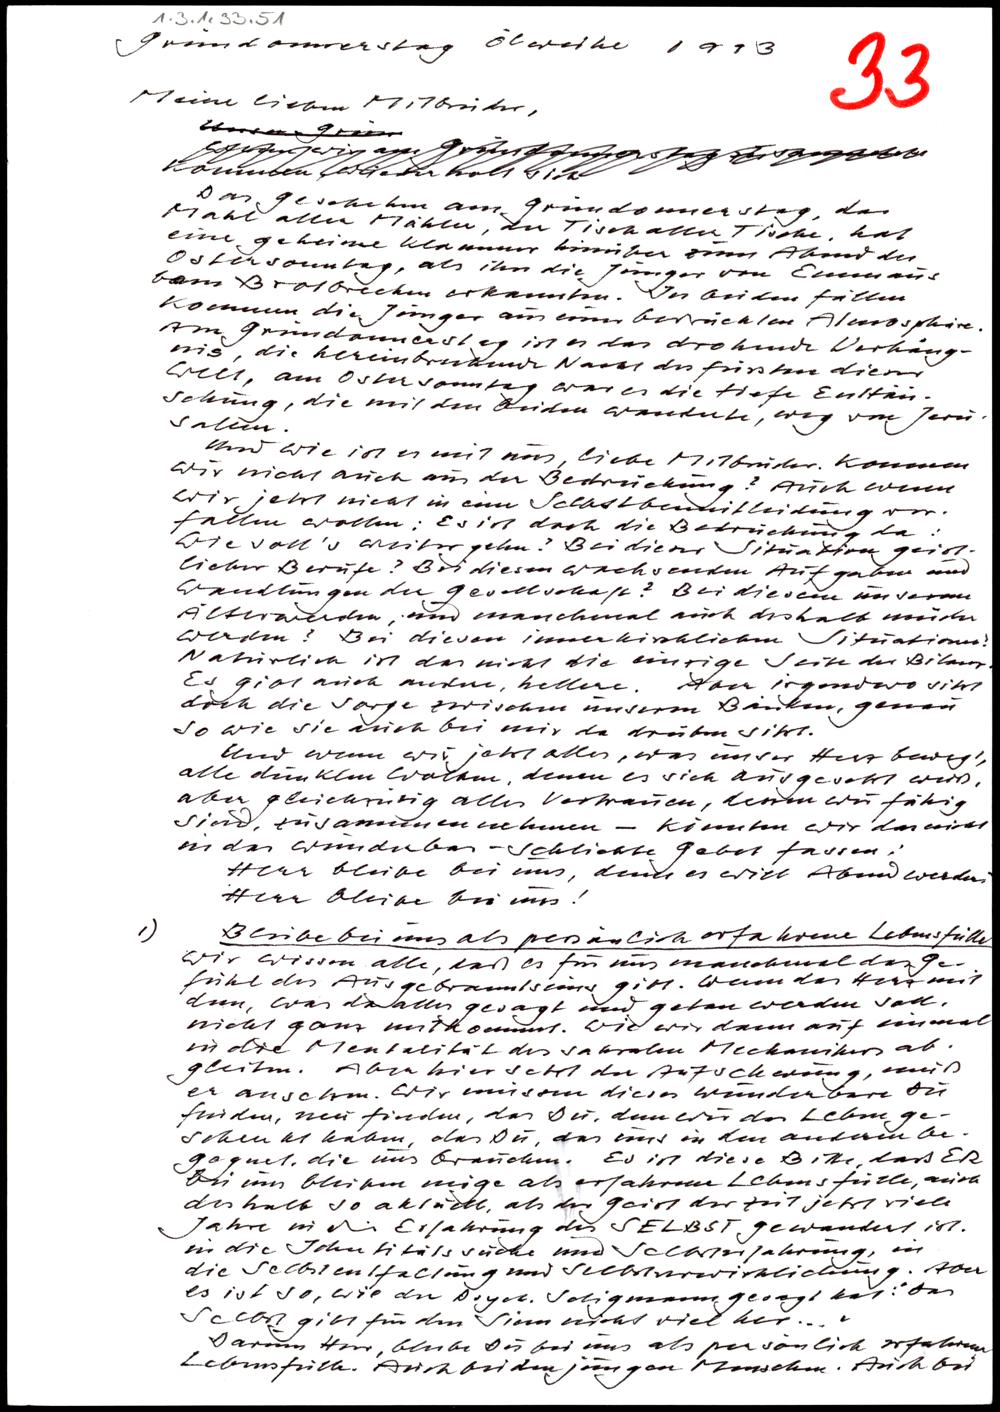 1.3.1.33.51
Gründonnerstag Ölweihe 1993
33
Meine lieben Mitbrüder,
Unser Grün
wir am Gründonnerstag
kommen, wiederholt sich
Das Geschehen am Gründonnerstag, das
Mahl aller Mähler, der Tisch aller Tische, hat
eine geheime Klammer hinüber zum Abend des
Ostersonntag, als ihn die Jünger von Emmaus
beim Brotbrechen erkannten. In beiden Fällen
kommen die Jünger aus einer bedrückten Atmosphäre.
Am Gründonnerstag ist es das drohende Verhäng-
nis, die hereinbrechende Nacht des Fürsten dieser
Welt, am Ostersonntag war es die tiefe Enttäu-
schung, die mit den Beiden wanderte, weg von Jeru-
salem.
Und wie ist es mit uns, liebe Mitbrüder. Kommen
wir nicht auch aus der Bedrückung? Auch wenn
wir jetzt nicht in eine Selbstbemitleidung ver-
fallen wollen: Es ist doch die Bedrückung da:
Wie soll's weitergehn? Bei dieser Situation geist-
licher Berufe? Bei diesen wachsenden Aufgaben und
Wandlungen der Gesellschaft? Bei diesem unserem
Älterwerden, und manchmal auch deshalb müde
werden? Bei diesen innerkirchlichen Situationen?
Natürlich ist das nicht die einzige Seite der Bilanz.
Es gibt auch andere, hellere. Aber irgendwo sitzt
doch die Sorge zwischen unseren Bänken, genau
so wie sie auch bei mir da drüben sitzt.
Und wenn wir jetzt alles, was unser Herz bewegt,
alle dunklen Wolken, denen es sich ausgesetzt weiß,
aber gleichzeitig alles Vertrauen, dessen wir fähig
sind, zusammennehmen – könnten wir das nicht
in das wunderbar-schlichte Gebet fassen:
Herr bleibe bei uns, denn es will Abend werden
Herr bleibe bei uns!
1) Bleibe bei uns als persönlich erfahrene Lebensfülle
Wir wissen alle, daß es für uns manchmal das Ge-
fühl des Ausgebranntseins gibt. Wenn das Herz mit
dem, was da alles gesagt und getan werden soll,
nicht ganz mitkommt. Wie wir dann auf einmal
in die Mentalität des sakralen Mechanikers ab-
gleiten. Aber hier setzt der Aufschwung, muß
er ansetzen. Wir müssen dieses wunderbare Du
finden, neu finden, das Du, dem wir das Leben ge-
schenkt haben, das Du, das uns in den anderen be-
gegnet, die uns brauchen. Es ist diese Bitte, daß ER
bei uns bleiben möge als erfahrene Lebensfülle, auch
deshalb so aktuell, als der Geist der Zeit jetzt viele
Jahre in die Erfahrung des SELBST gewandert ist.
in die Identitätssuche und Selbsterfahrung, in
die Selbstentfaltung und Selbstverwirklichung. Aber
es ist so, wie der Psych. Seligmann gesagt hat: "Das
Selbst gibt für den Sinn nicht viel her..."
Darum Herr, bleibe Du bei uns als persönlich erfahrene
Lebensfülle. Auch bei den jungen Menschen. Auch bei